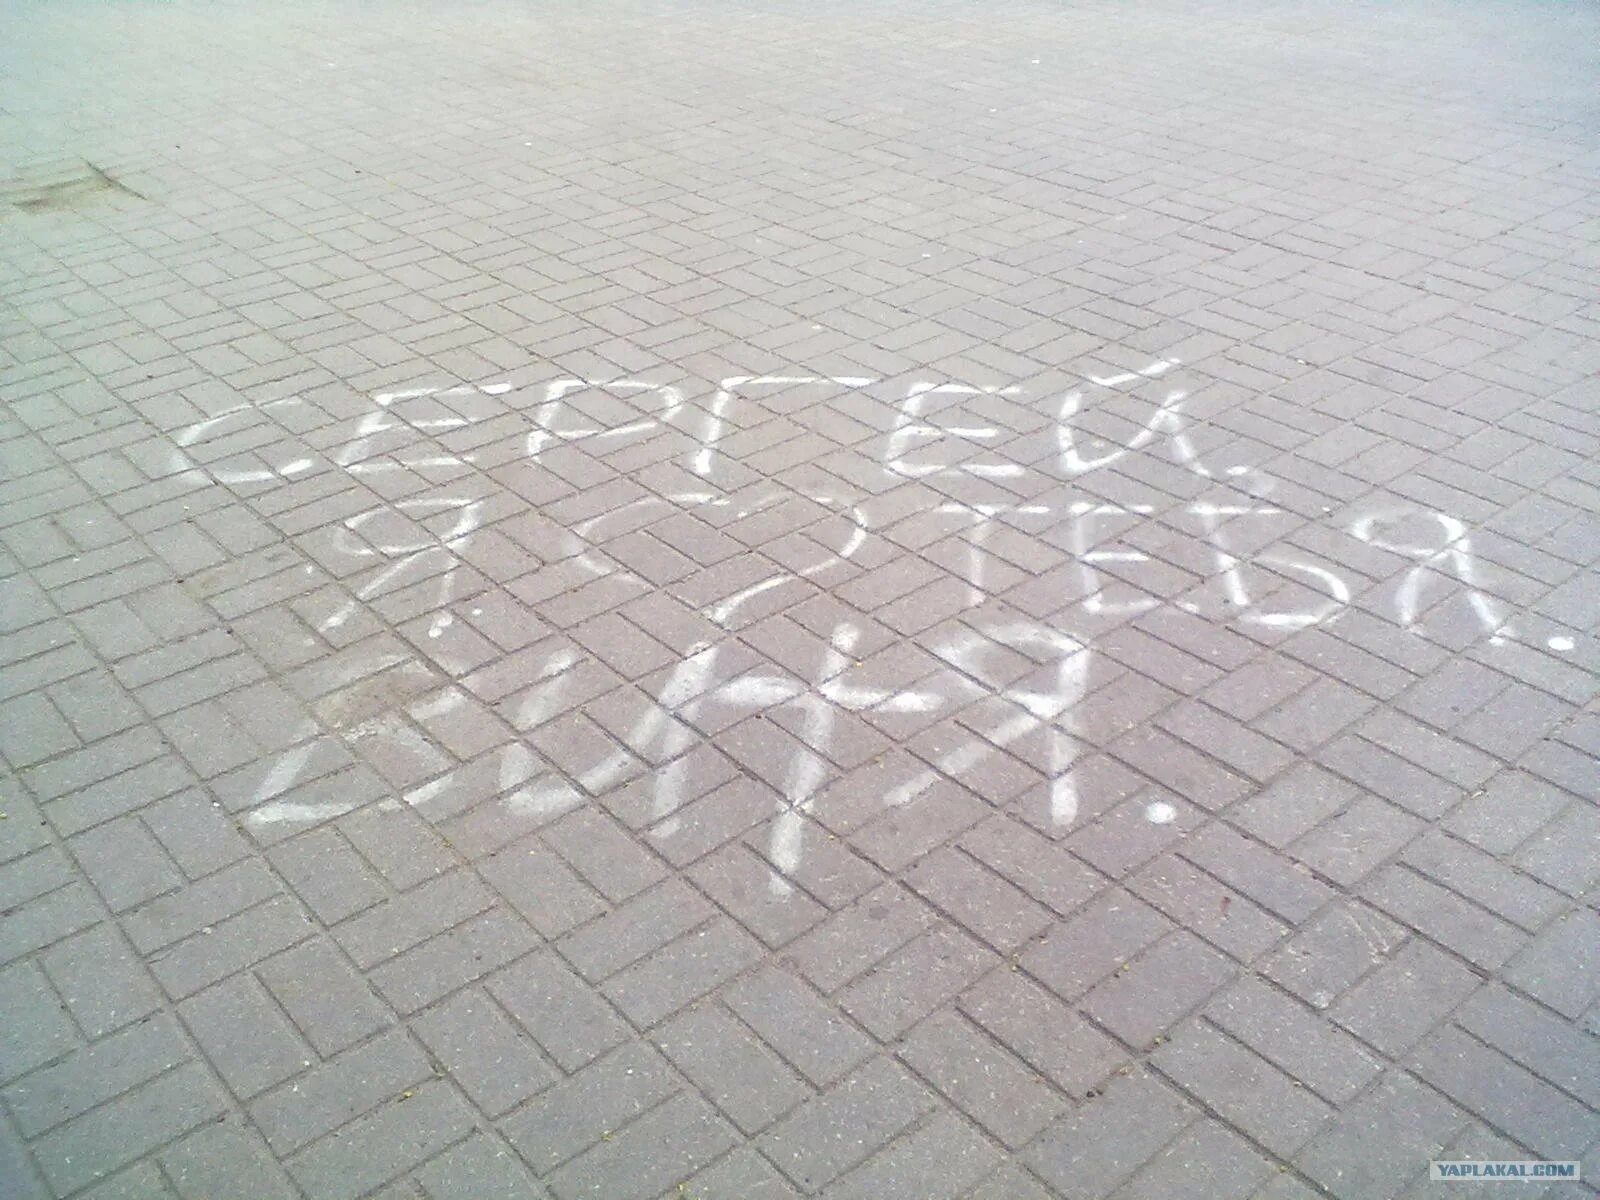 СЕРГЕЙ,
Я ♡ ТЕБЯ.
ВИТЯ.
YAPLAKAL.COM